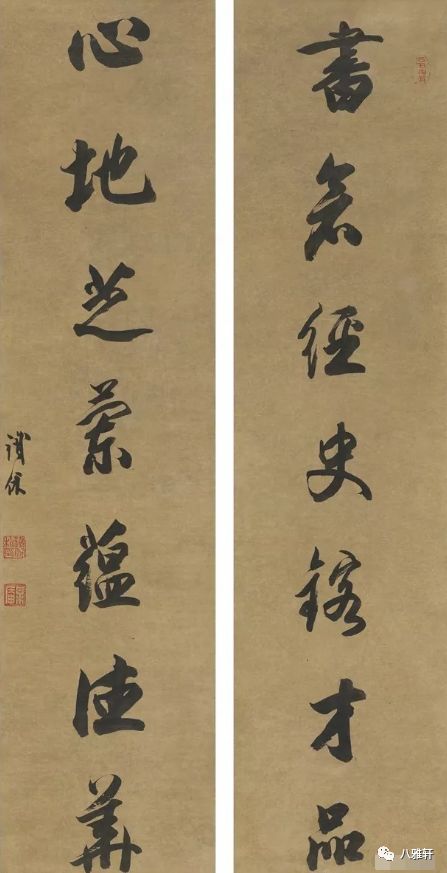 書倉經史鎔才品
心地芝蘭蘊德華
鐵保
八雅轩